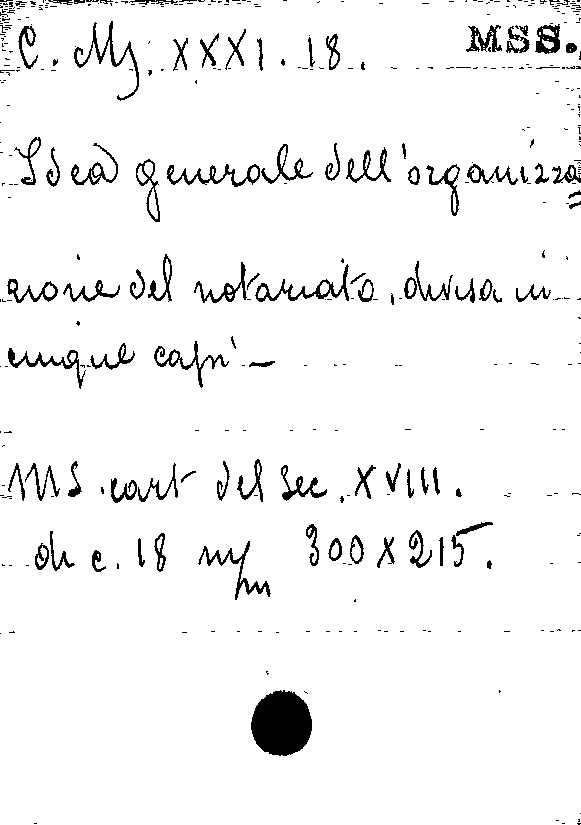 C. Ms. XXXI. 18. MSS.
Idea generale dell'organizza=
zione del notariato, divisa in
cinque capi —
MS. cart del sec. XVIII.
di c. 18 mm 300 X 215.